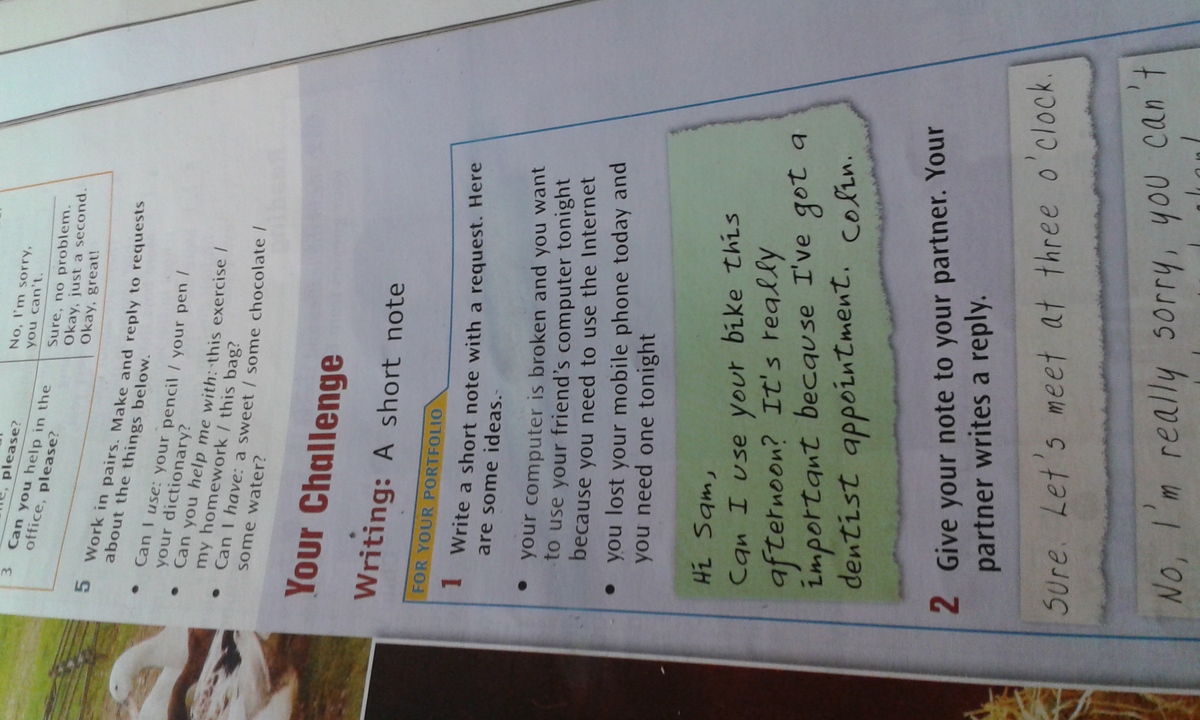 3 Can you help in the
office, please?
please?
No, I'm sorry,
you can't.
Sure, no problem.
Okay, just a second.
Okay, great!
5 Work in pairs. Make and reply to requests
about the things below.
• Can I use: your pencil / your pen /
your dictionary?
• Can you help me with: this exercise /
my homework / this bag?
• Can I have: a sweet / some chocolate /
some water?
Your Challenge
Writing: A short note
FOR YOUR PORTFOLIO
1 Write a short note with a request. Here
are some ideas.
• your computer is broken and you want
to use your friend's computer tonight
because you need to use the Internet
• you lost your mobile phone today and
you need one tonight
Hi Sam,
Can I use your bike this
afternoon? It's really
important because I've got a
dentist appointment. Colin.
2 Give your note to your partner. Your
partner writes a reply.
Sure. Let's meet at three o'clock.
No, I'm really sorry, you can't